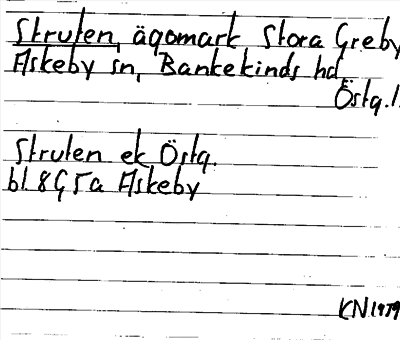 Struten, ägomark Stora Greby
Askeby sn, Bankekinds hd
Östg. l.
Struten ek Östg.
bl 8G 5a Askeby
KN 1979